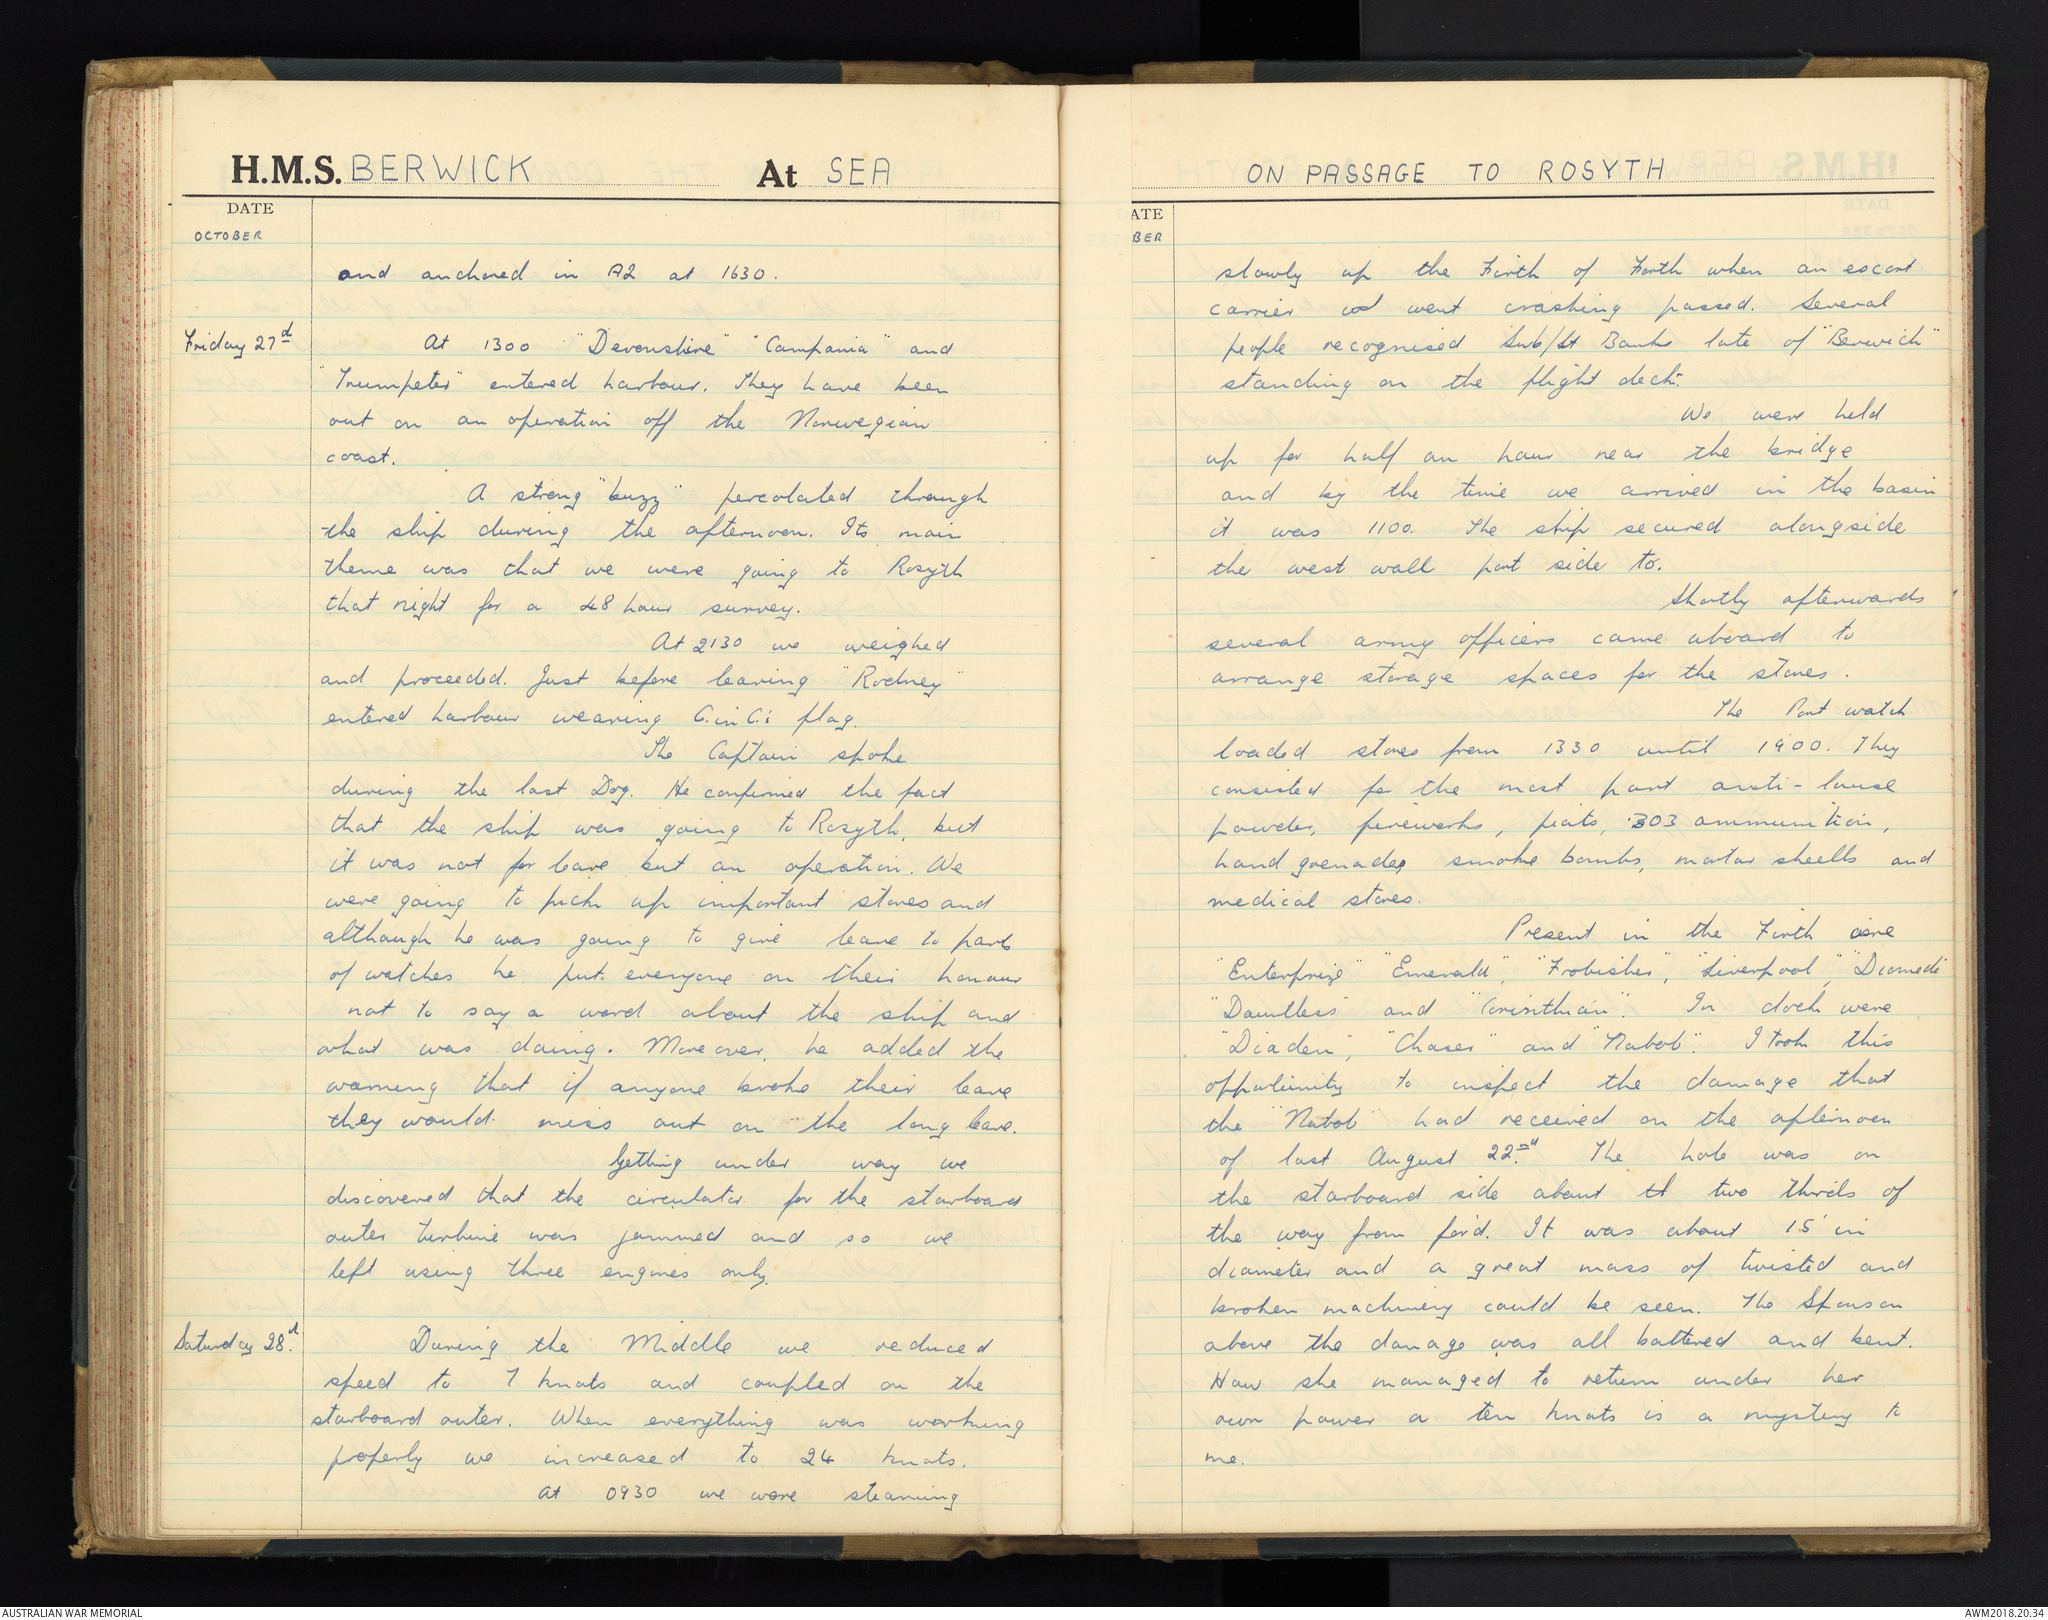 H.M.S. BERWICK At SEA
DATE
OCTOBER
and anchored in A2 at 1630.
Friday 27d At 1300 "Devonshire" "Campania" and
"Trumpeter" entered harbour. They have been
out on an operation off the Norwegian
coast.
A strong "buzz" percolated through
the ship during the afternoon. Its main
theme was that we were going to Rosyth
that night for a 48 hour survey.
At 2130 we weighed
and proceeded. Just before leaving "Rodney"
entered harbour wearing C.in C.'s flag.
The Captain spoke
during the last Dog. He confirmed the fact
that the ship was going to Rosyth, but
it was not for leave but an operation. We
were going to pick up important stores and
although he was going to give leave to part
of watches he put everyone on their honour
not to say a word about the ship and
what was doing. Moreover, he added the
warning that if anyone broke their leave
they would miss out on the long leave.
Getting under way we
discovered that the circulator for the starboard
outer turbine was jammed and so we
left using three engines only.
Saturday 28d. During the Middle we reduced
speed to 7 knots and coupled on the
starboard outer. When everything was working
properly we increased to 24 knots.
At 0930 we were steaming
ON PASSAGE TO ROSYTH
ATE
BER
slowly up the Firth of Forth when an escort
carrier went crashing passed. Several
people recognised Sub/Lt Banks late of "Berwick"
standing on the flight deck.
We were held
up for half an hour near the bridge
and by the time we arrived in the basin
it was 1100. The ship secured alongside
the west wall port side to.
Shortly afterwards
several army officers came aboard to
arrange storage spaces for the stores.
The Port watch
loaded stores from 1330 until 1900. They
consisted for the most part anti-louse
powder, fireworks, piats, .303 ammunition,
hand grenades, smoke bombs, mortar shells and
medical stores.
Present in the Firth are
"Enterprize" "Emerald", "Frobisher", "Liverpool", "Diomede"
"Dauntless" and "Corinthian". In dock were
"Diadem", "Chaser" and "Nabob". I took this
opportunity to inspect the damage that
the "Nabob" had received on the afternoon
of last August 22nd. The hole was on
the starboard side about two thirds of
the way from for'd. It was about 15' in
diameter and a great mass of twisted and
broken machinery could be seen. The Sponson
above the damage was all battered and bent.
How she managed to return under her
own power a ten knots is a mystery to
me.
AUSTRALIAN WAR MEMORIAL
AWM2018.20.34